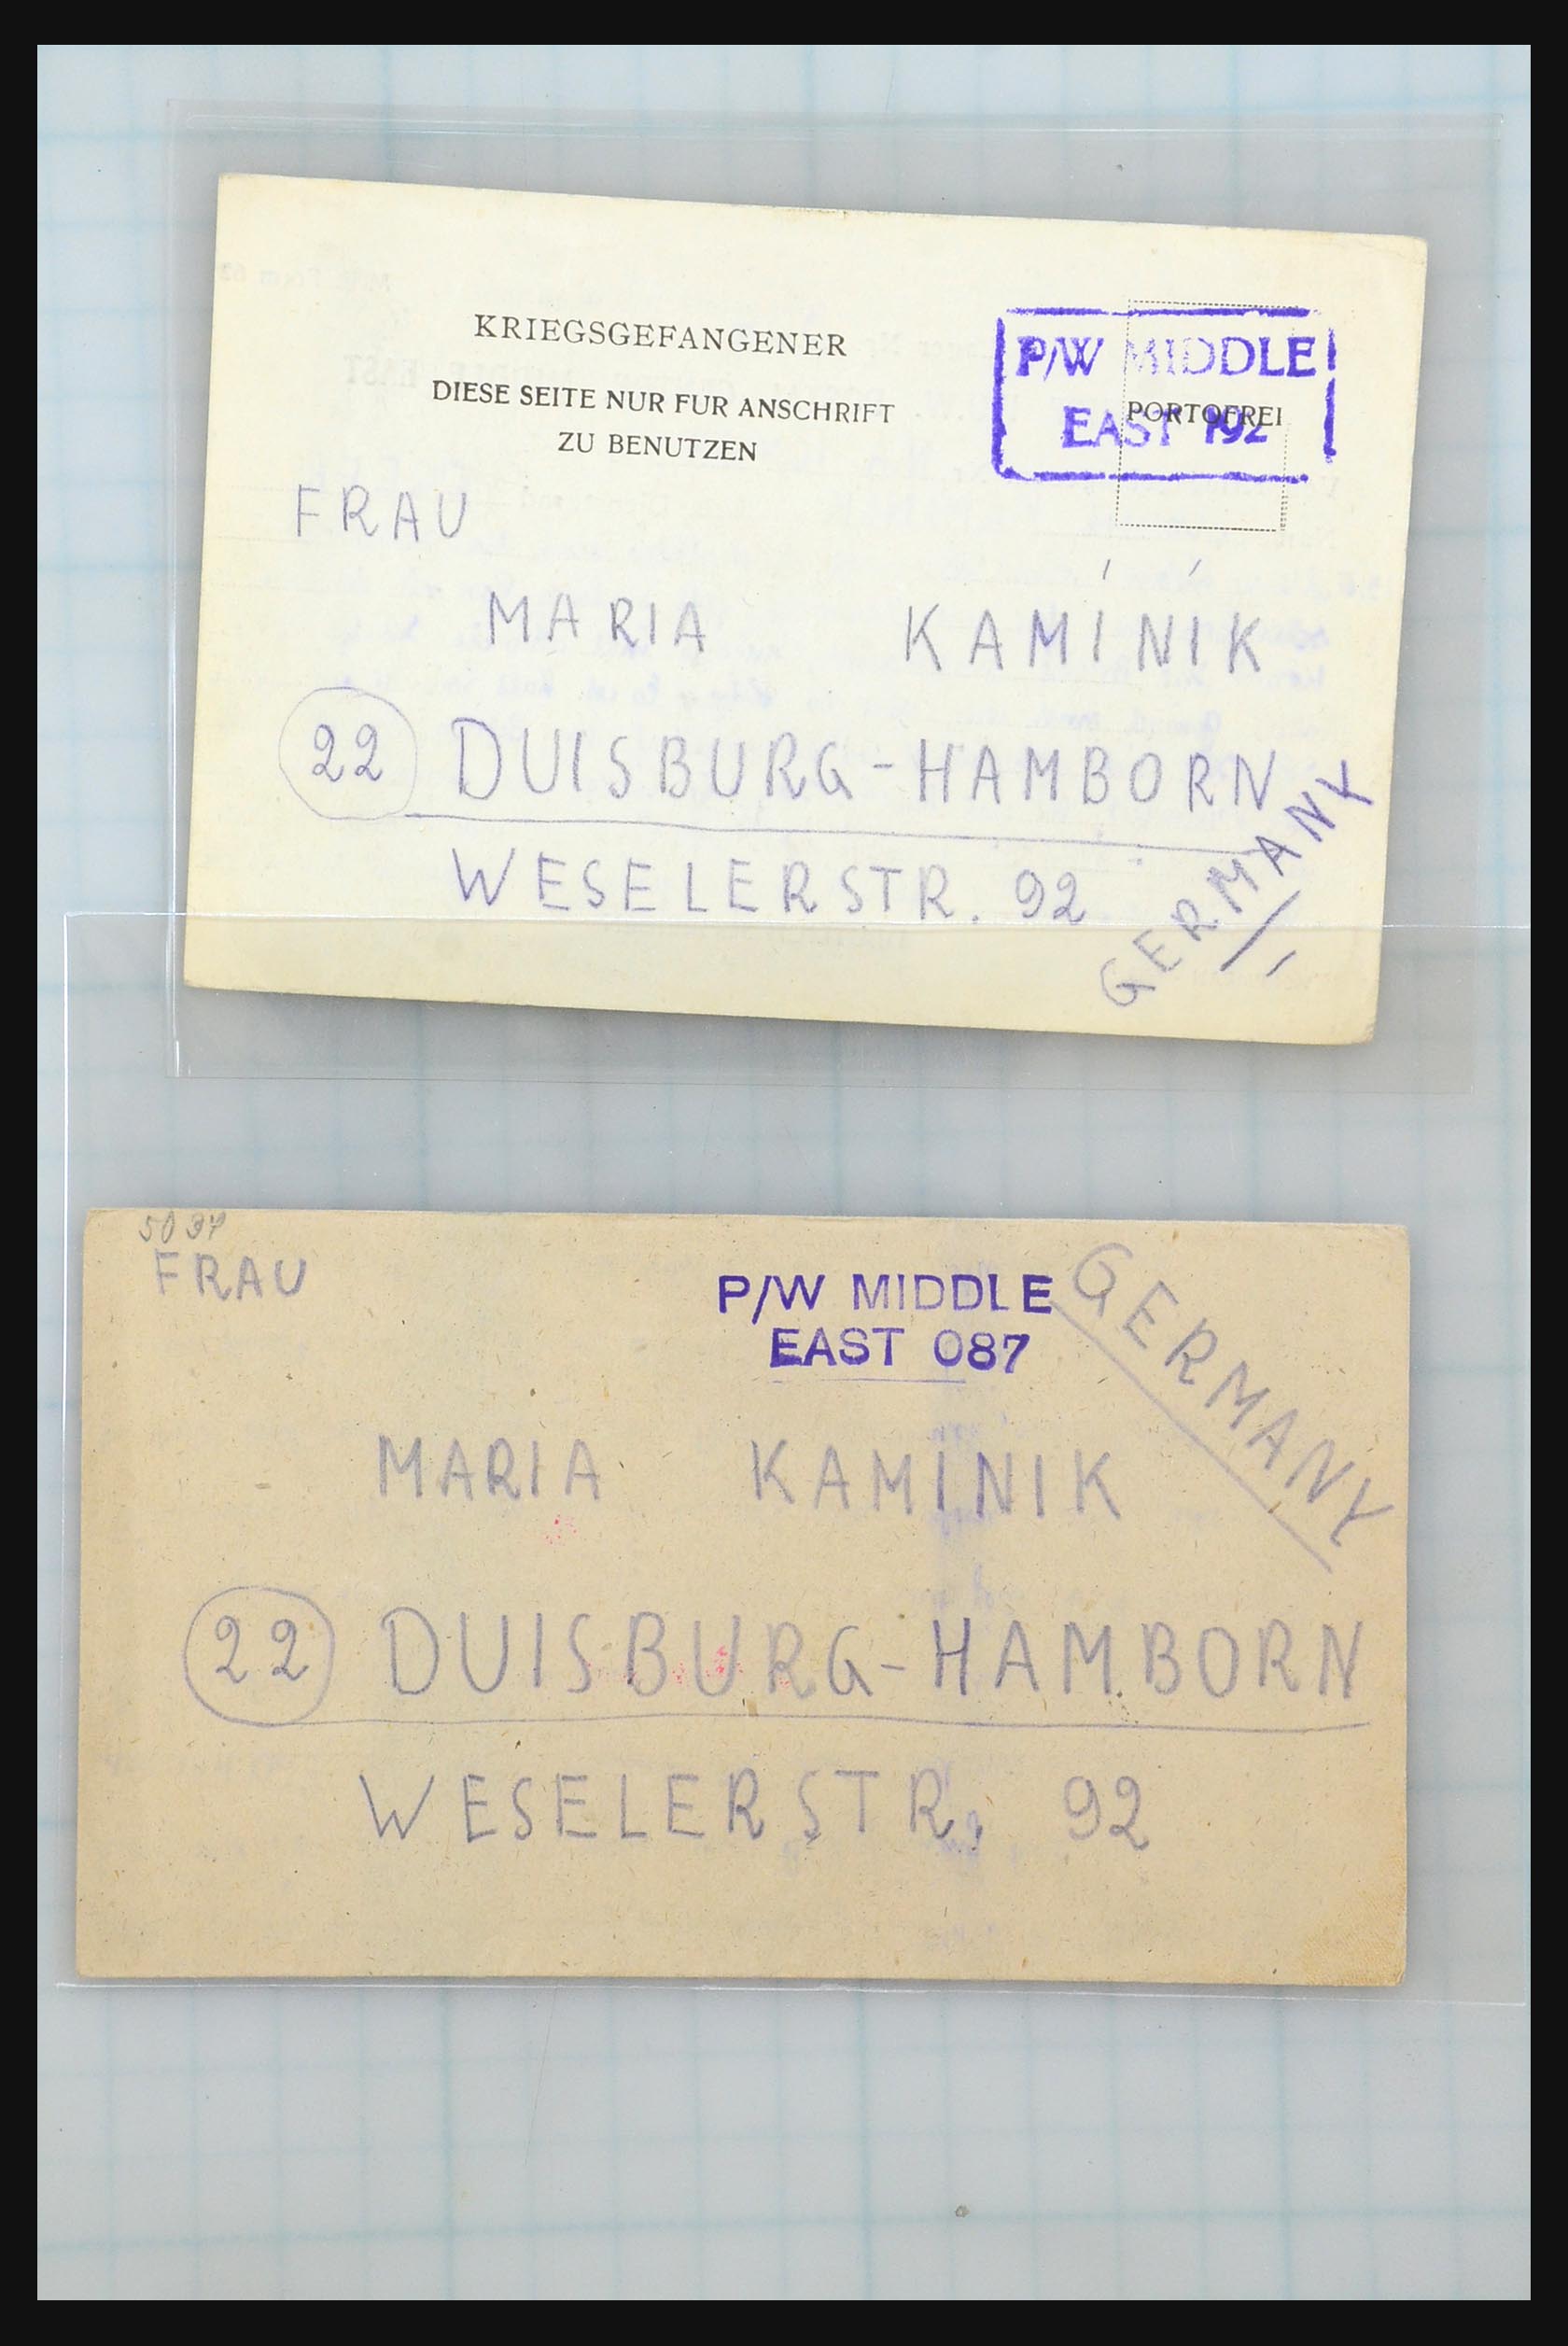 KRIEGSGEFANGENER
DIESE SEITE NUR FUR ANSCHRIFT
ZU BENUTZEN
P/W MIDDLE
EAST 192
PORTOFREI
FRAU
MARIA KAMINIK
22 DUISBURG-HAMBORN
WESELERSTR. 92
GERMANY
5037
FRAU
P/W MIDDLE
EAST 087
GERMANY
MARIA KAMINIK
22 DUISBURG-HAMBORN
WESELERSTR. 92